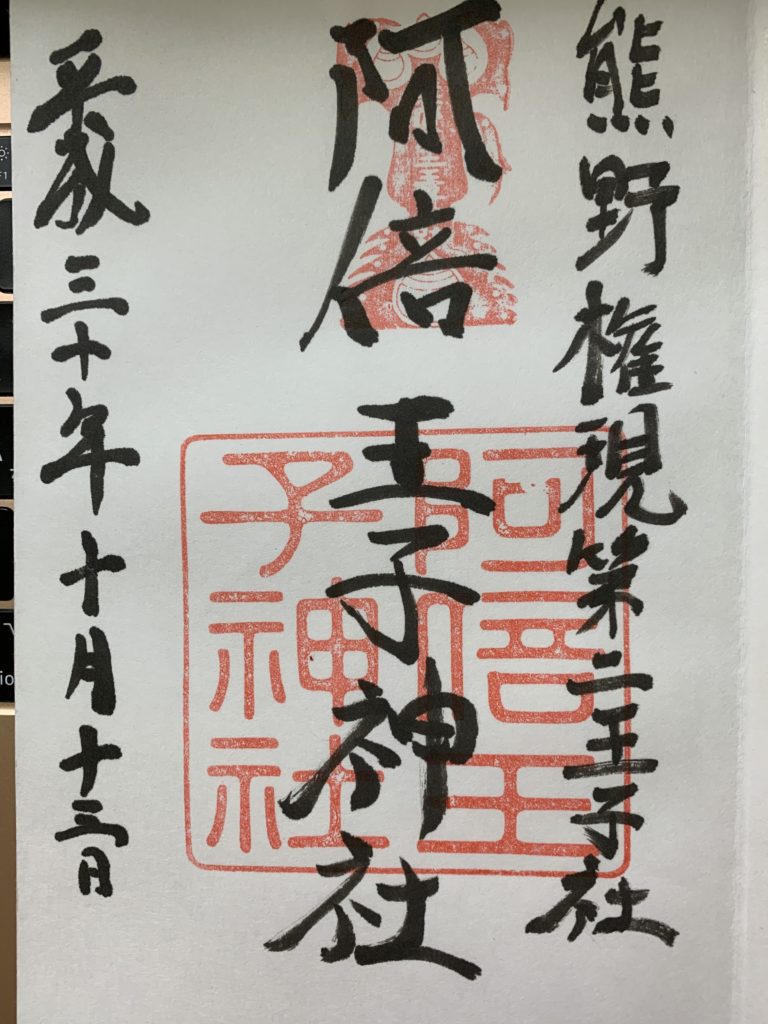 熊野権現第二王子社
阿倍王子神社
平成三十年十月十三日
阿倍王
子神社
F1